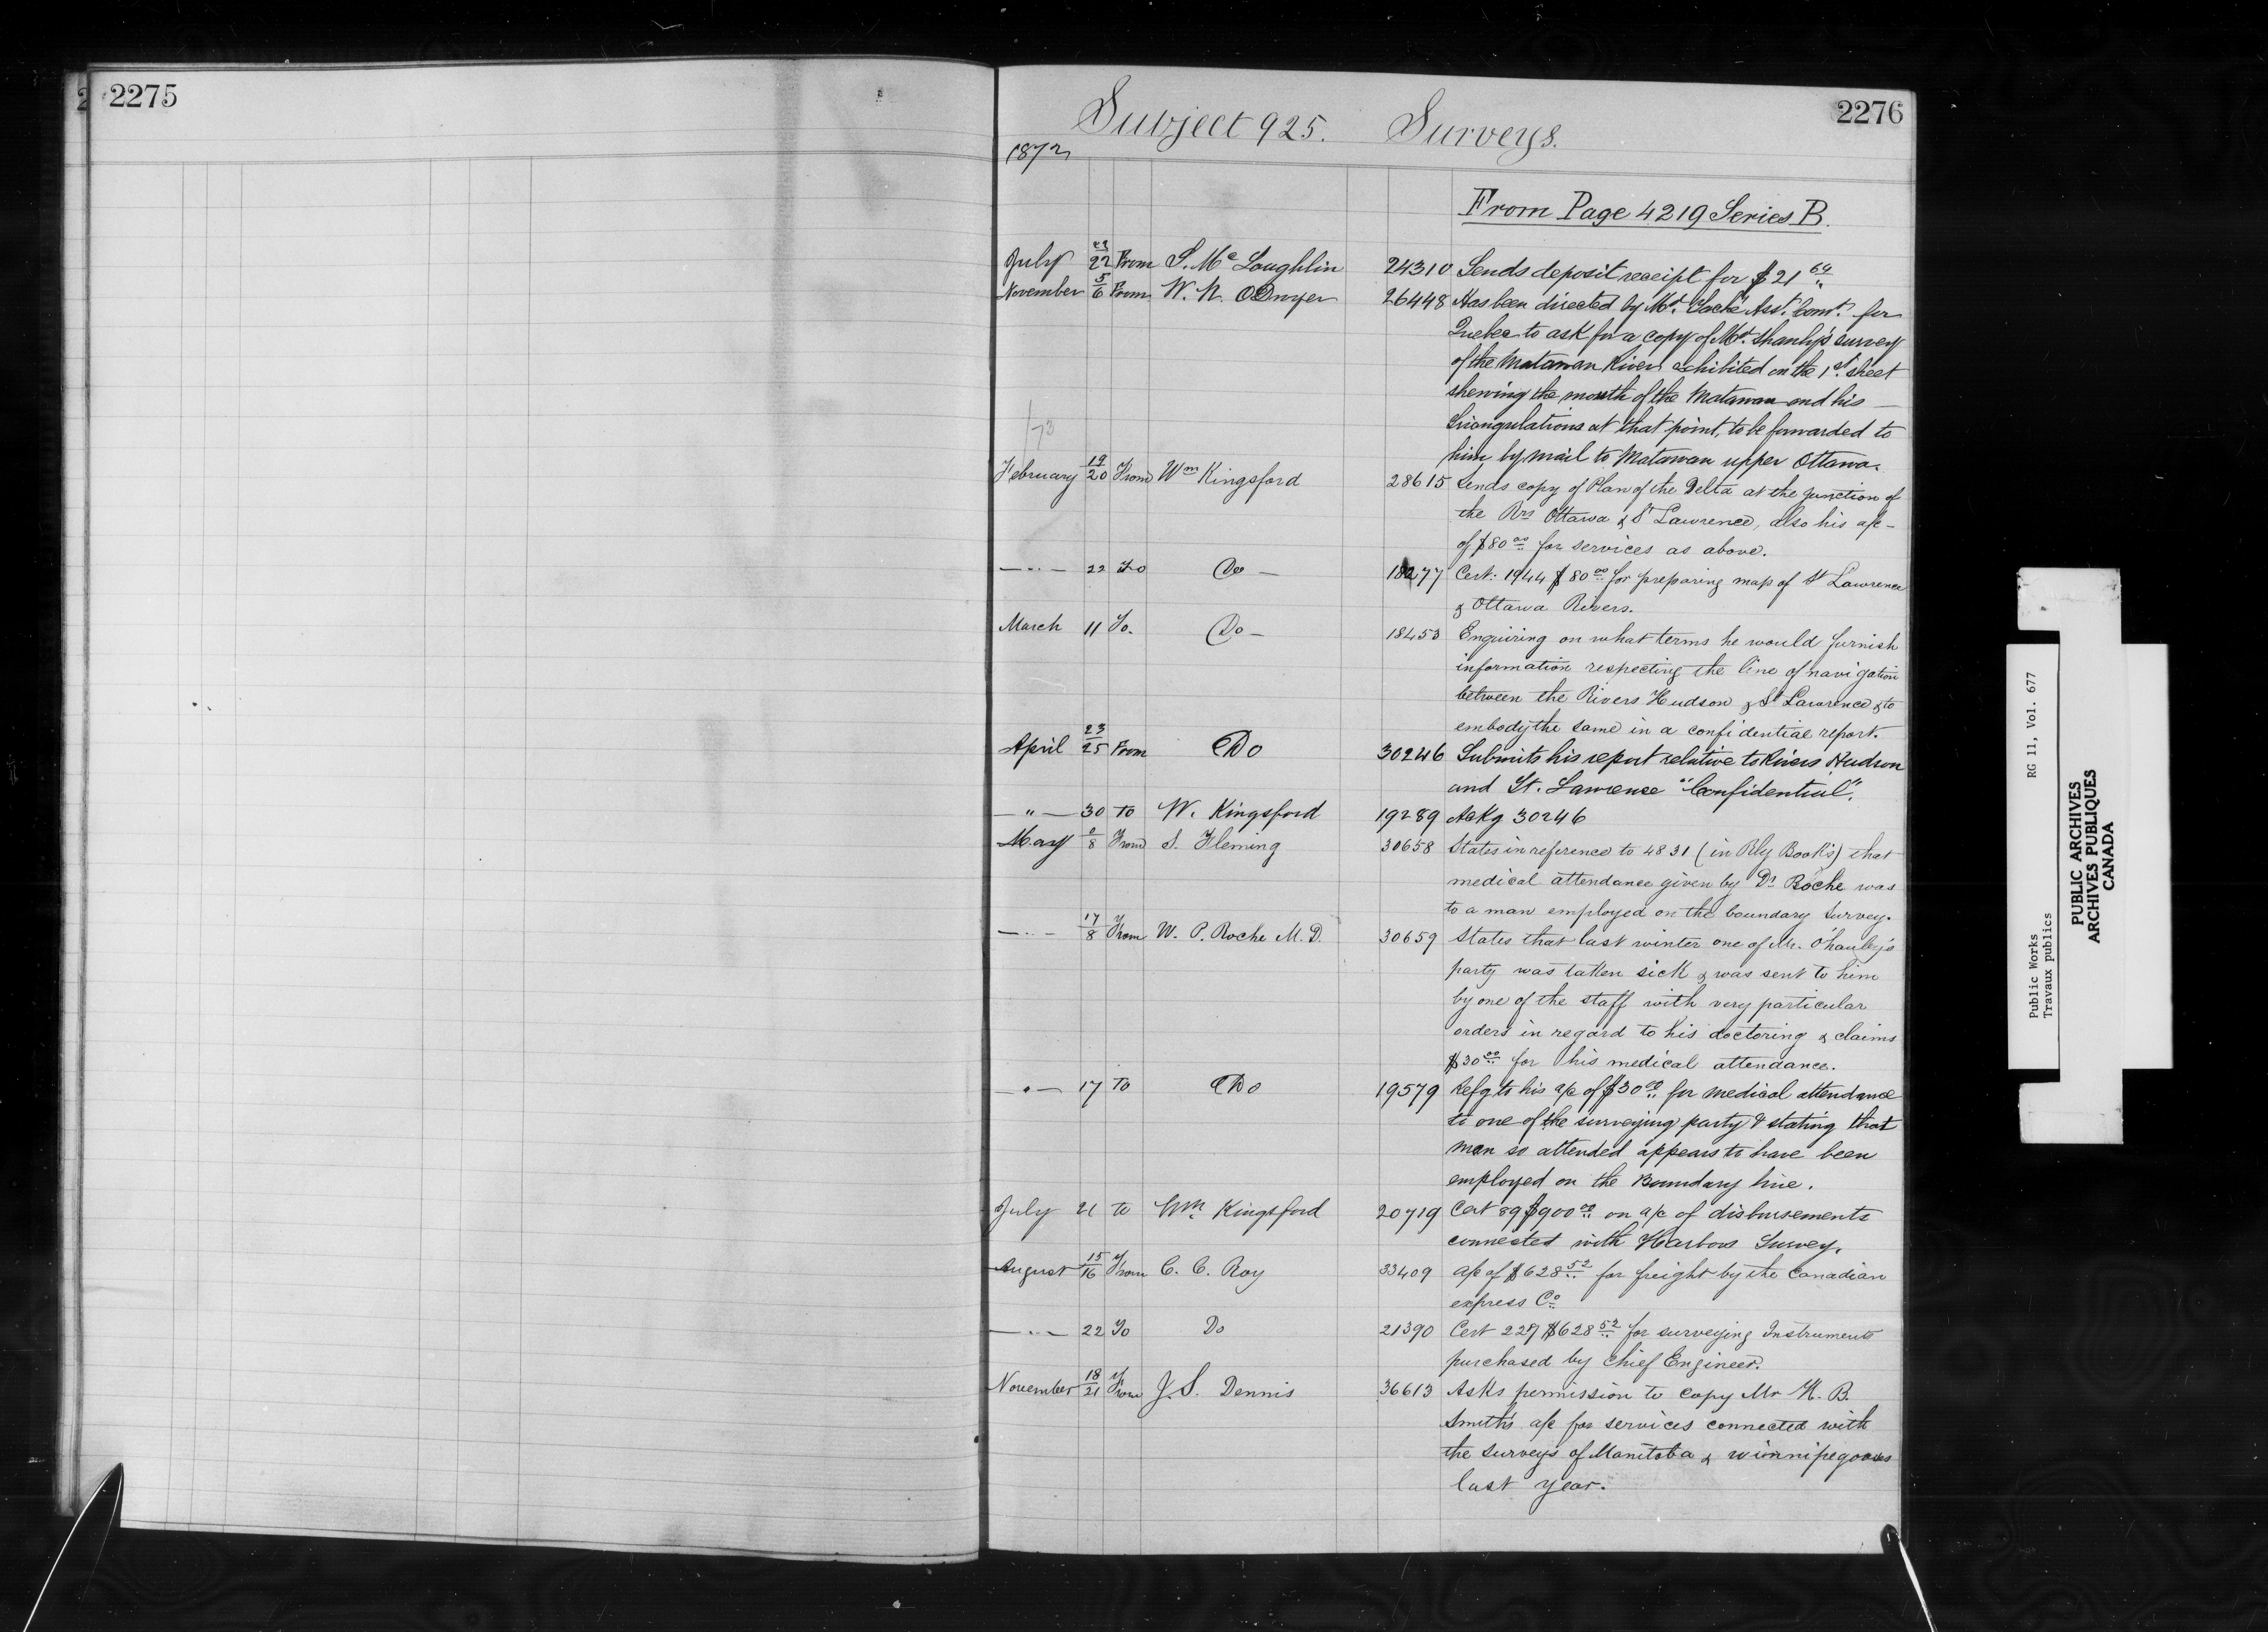 2275
2276
Subject 925. Surveys.
1872
From Page 4219 Series B.
July 22 From S. Mc Loughlin 24310 Sends deposit receipt for $21 64
November 5/6 From W. N. ODwyer 26448 Has been directed by Mr. Taché Asst. Comr. for
Quebec to ask for a copy of Mr. Shanly's survey
of the Matawan River exhibited on the 1st sheet
shewing the mouth of the Matawan and his —
triangulations at that point, to be forwarded to
him by mail to Matawan upper Ottawa.
/73
February 19/20 From Wm Kingsford 28615 Sends copy of Plan of the Delta at the junction of
the Rrs Ottawa & St Lawrence, also his a/c —
of $80 00 for services as above.
— " — 22 To Do — 18277 Cert: 1944 $80 00 for preparing map of St Lawrence
& Ottawa Rivers.
March 11 To. Do — 18453 Enquiring on what terms he would furnish
information respecting the line of navigation
between the Rivers Hudson & St Lawrence & to
embody the same in a confidential report.
April 23/25 From Do 30246 Submits his report relative to Rivers Hudson
and St. Lawrence "Confidential".
— " — 30 To W. Kingsford 19289 Ackg 30246
May 8 From S. Fleming 30658 States in reference to 4831 (in Rly Book's) that
medical attendance given by Dr Roche was
to a man employed on the boundary Survey.
— " — 17/8 From W. P. Roche M. D. 30659 States that last winter one of Mr. O'hanley's
party was taken sick & was sent to him
by one of the staff with very particular
orders in regard to his doctoring & claims
$30 00 for his medical attendance.
— " — 17 To Do 19579 Refg to his a/c of $30 00 for medical attendance
to one of the surveying party & stating that
man so attended appears to have been
employed on the Boundary line.
July 21 to Wm Kingsford 20719 Cert 89 $900 00 on a/c of disbursements
connected with Harbour Survey.
August 15/16 From C. C. Roy 33409 a/c of $628 52 for freight by the Canadian
express Co
— " — 22 To Do 21390 Cert 227 $628 52 for surveying Instruments
purchased by Chief Engineer.
November 18/21 From J. S. Dennis 36613 Asks permission to copy Mr H. B.
Smith's a/c for services connected with
the surveys of Manitoba & Winnipegoosis
last year.
Public Works RG 11, Vol. 677
Travaux publics
PUBLIC ARCHIVES
ARCHIVES PUBLIQUES
CANADA